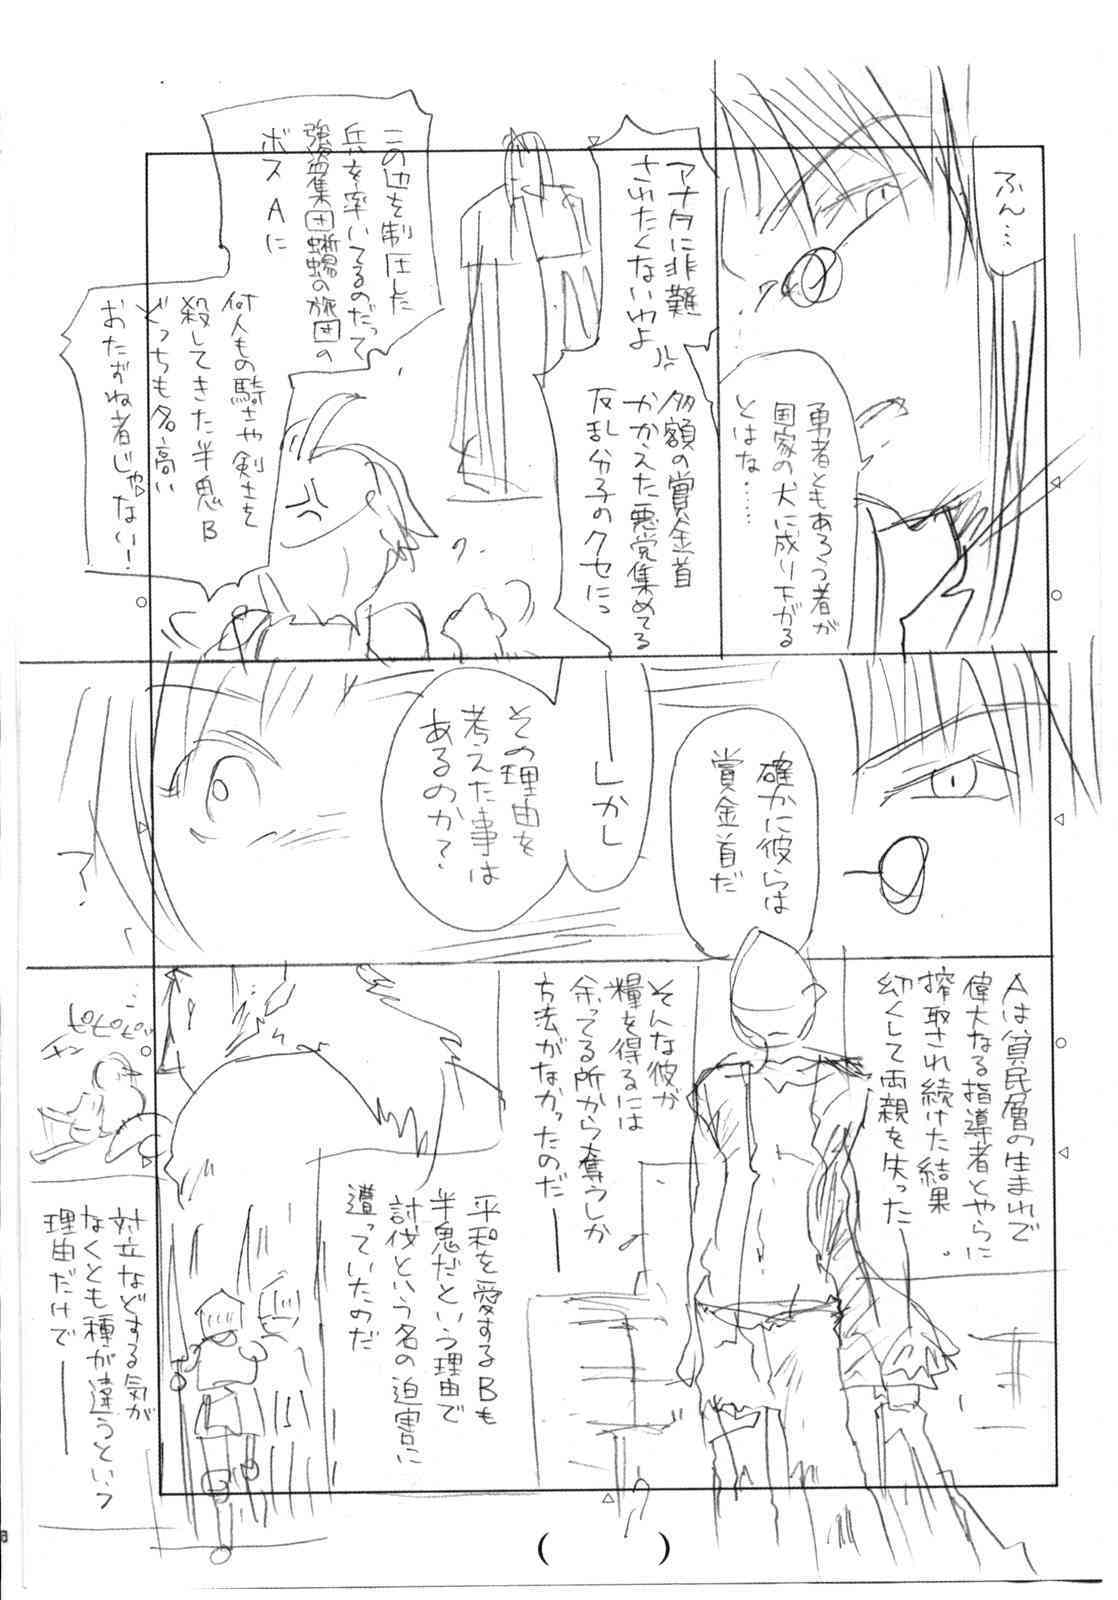 ふん…
勇者ともあろう者が
国家の犬に成り下がる
とはな……
アナタに非難
されたくないわよ
多額の賞金首
かかえた悪党集めてる
反乱分子のクセにっ
この辺を制圧した
兵を率いてるのだって
強盗集団蜥蜴の旅団の
ボスAに
何人もの騎士や剣士を
殺してきた半鬼B
どっちも名高い
おたずね者じゃない!
確かに彼らは
賞金首だ
――しかし
その理由を
考えた事は
あるのか?
?
Aは貧民層の生まれで
偉大なる指導者とやらに
搾取され続けた結果
幼くして両親を失った――
そんな彼が
糧を得るには
余ってる所から奪うしか
方法がなかったのだ――
平和を愛するBも
半鬼だという理由で
討伐という名の迫害に
遭っていたのだ
対立などする気が
なくとも種が違うという
理由だけで――
( )